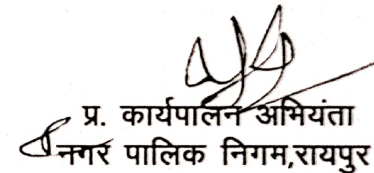 प्र. कार्यपालन अभियंता
नगर पालिक निगम,रायपुर